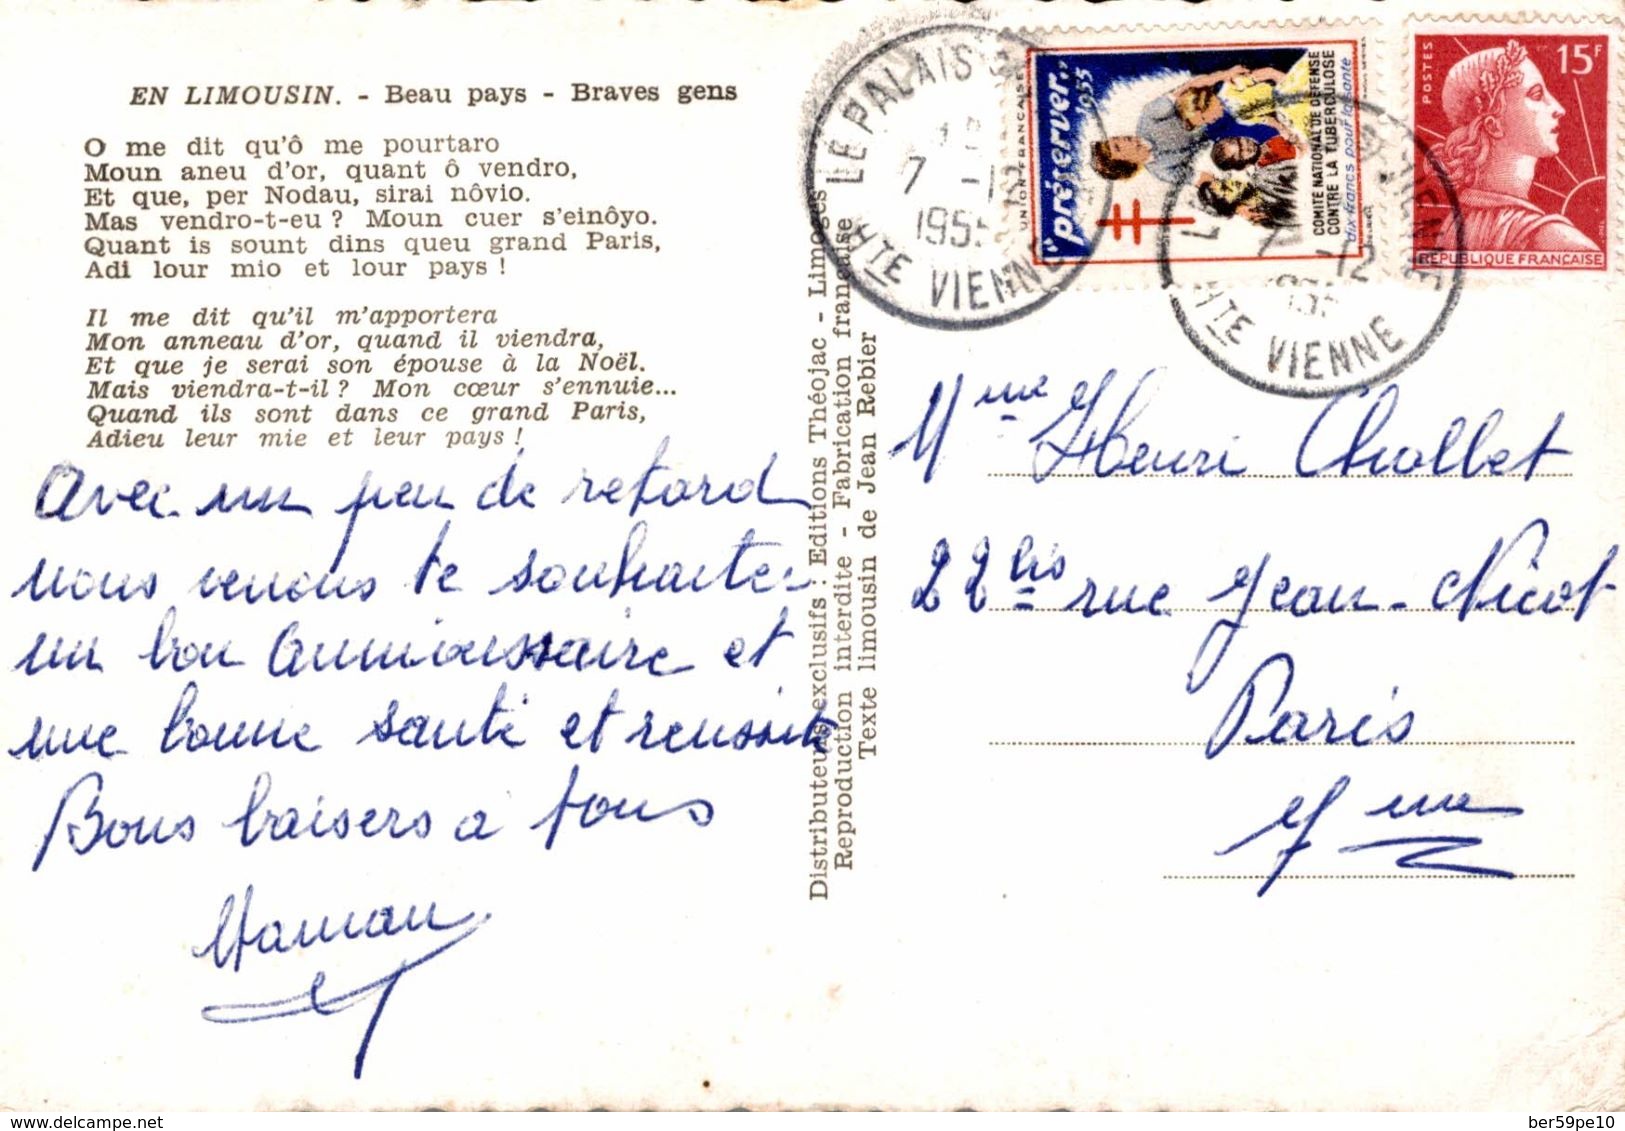 EN LIMOUSIN. - Beau pays - Braves gens
O me dit qu'ô me pourtaro
Moun aneu d'or, quant ô vendro,
Et que, per Nodau, sirai nôvio.
Mas vendro-t-eu ? Moun cuer s'einôyo.
Quant is sount dins queu grand Paris,
Adi lour mio et lour pays !
Il me dit qu'il m'apportera
Mon anneau d'or, quand il viendra,
Et que je serai son épouse à la Noël.
Mais viendra-t-il ? Mon cœur s'ennuie...
Quand ils sont dans ce grand Paris,
Adieu leur mie et leur pays !
Avec un peu de retard
nous venons te souhaiter
un bon anniversaire et
une bonne santé et réussite
Bons baisers a tous
Maman
Distributeurs exclusifs : Editions Théojac - Limoges
Reproduction interdite - Fabrication française
Texte limousin de Jean Rebier
LE PALAIS
7 -12
1955
HTE VIENNE
UNION FRANÇAISE
"préserver"
1955
COMITÉ NATIONAL DE DÉFENSE
CONTRE LA TUBERCULOSE
dix francs pour la santé
7 -12
HTE VIENNE
POSTES
15F
REPUBLIQUE FRANÇAISE
Mme Henri Chollet
22 bis rue Jean-Nicot
Paris
7me
delcampe.net
ber59pe10